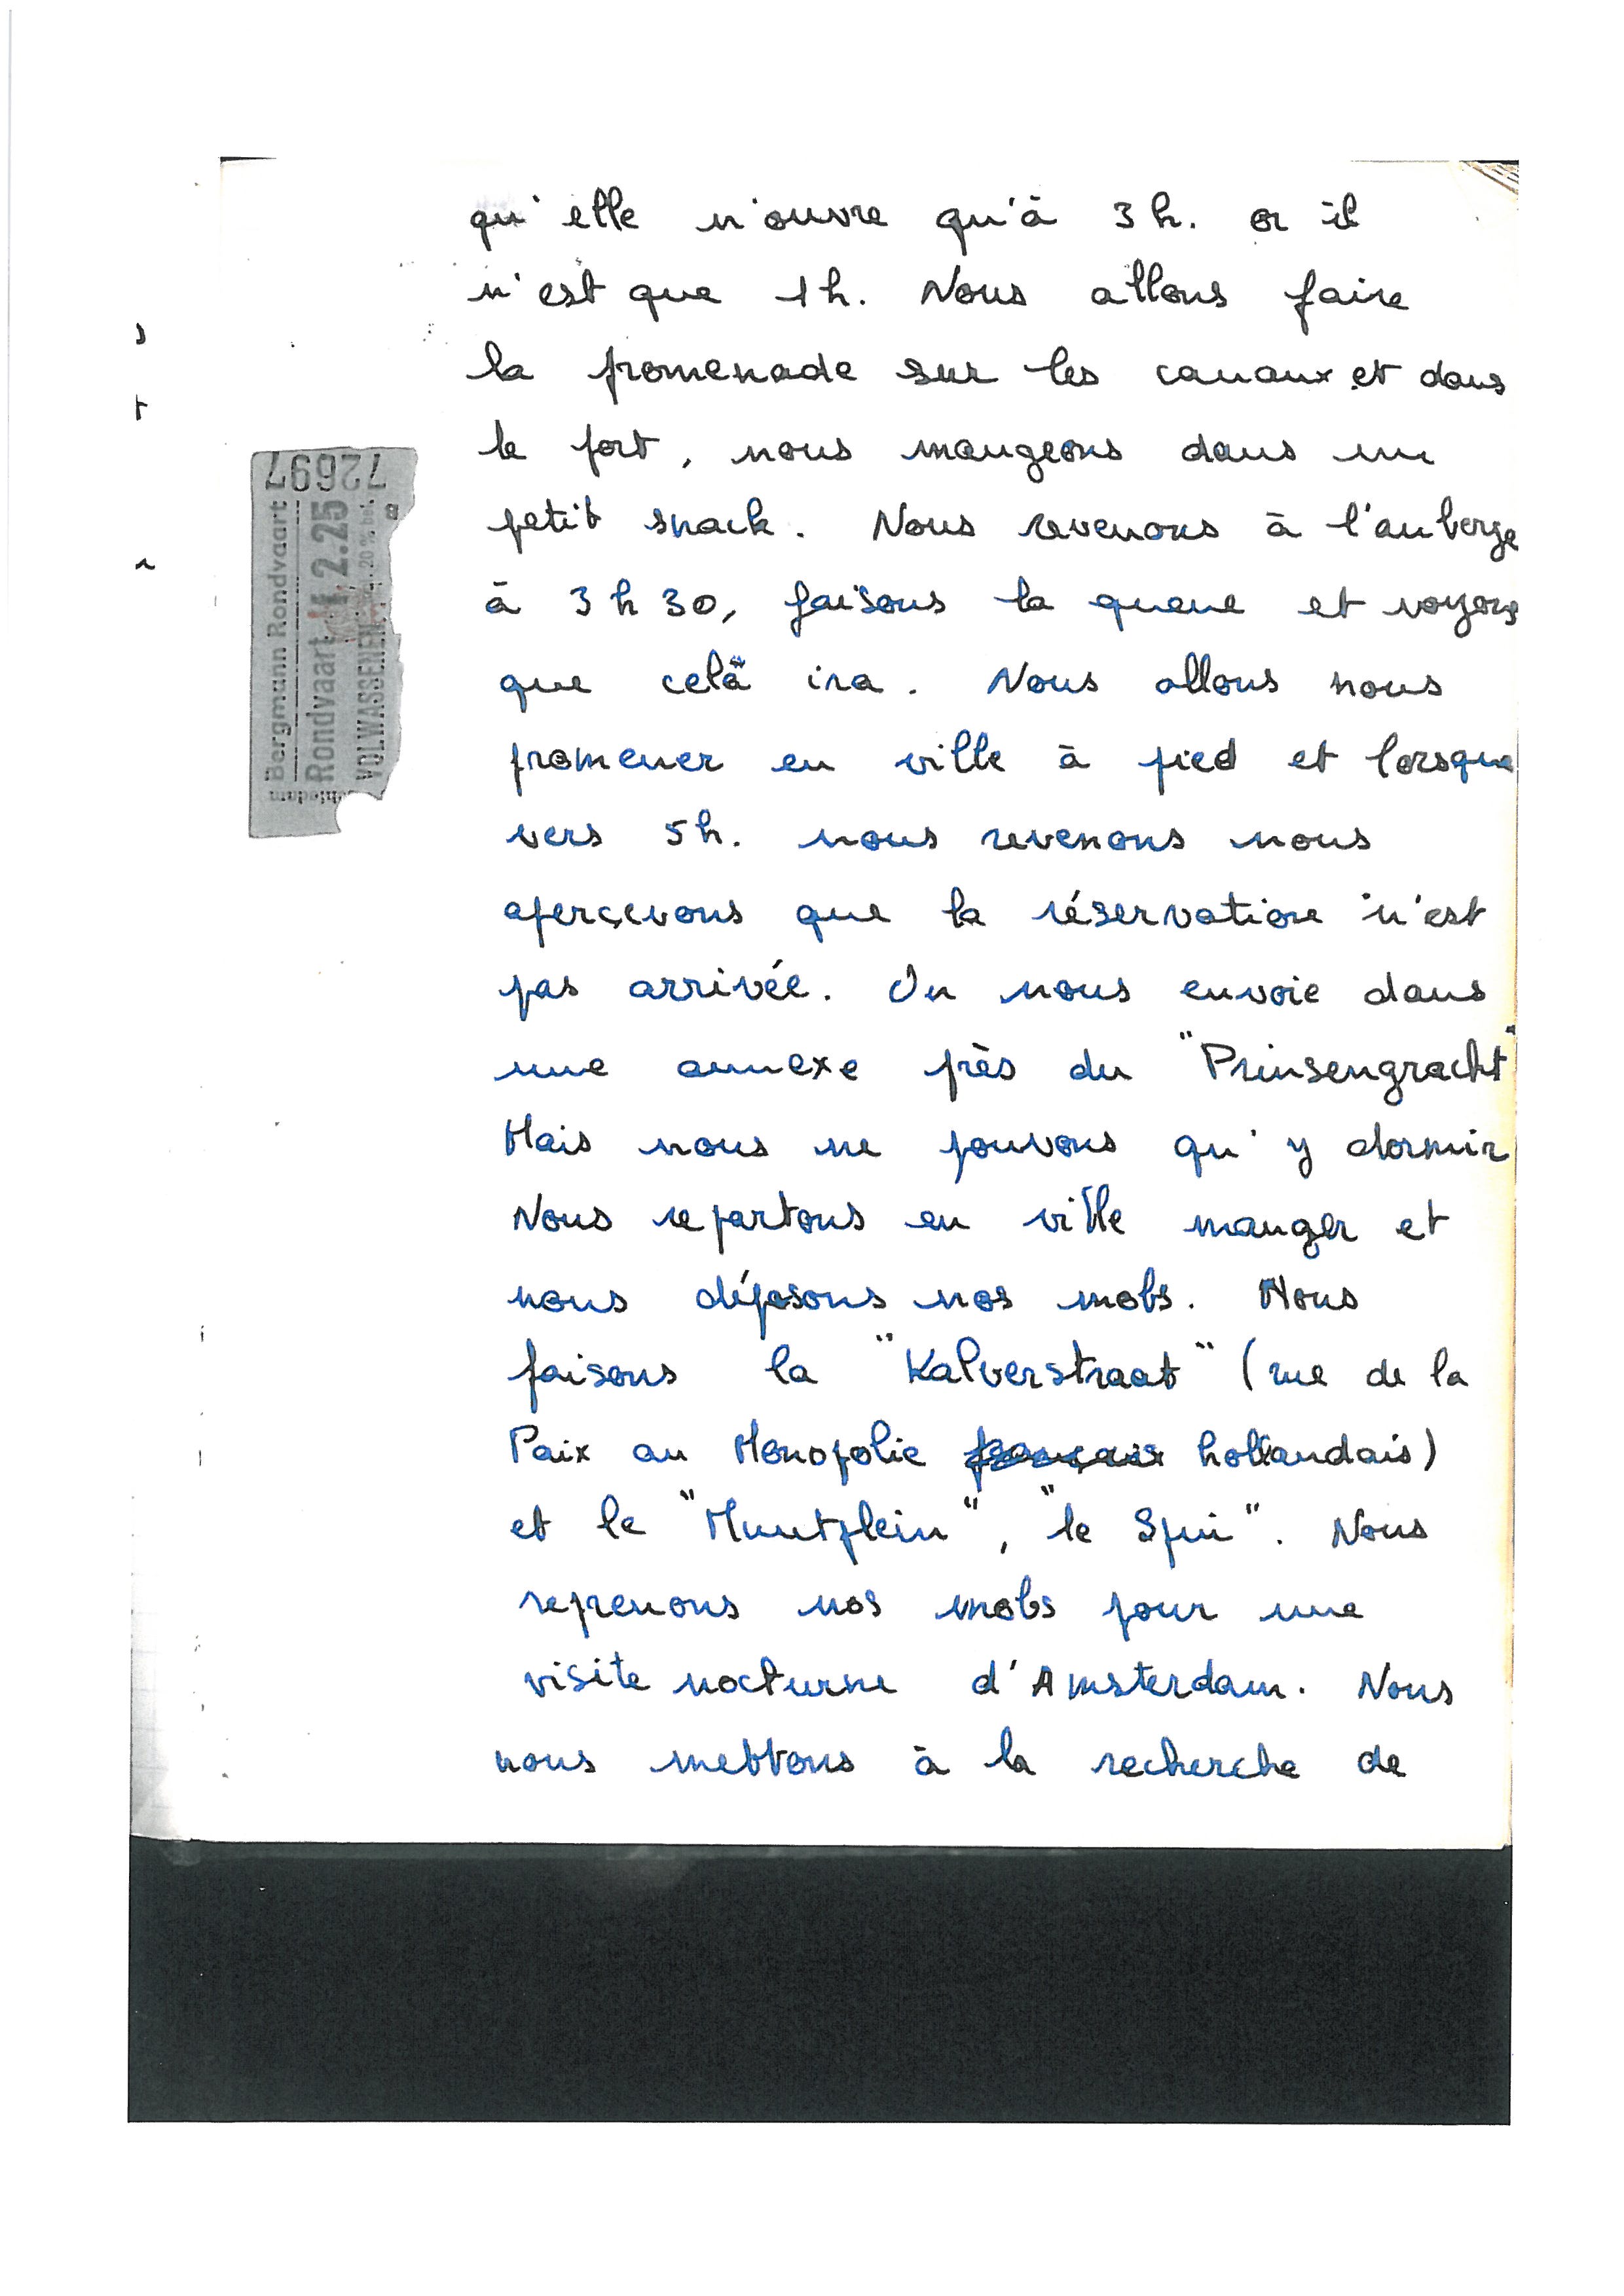 qu'elle n'ouvre qu'à 3 h. or il
n'est que 1h. Nous allons faire
la promenade sur les canaux et dans
le port, nous mangeons dans un
petit snack. Nous revenons à l'auberge
à 3 h 30, faisons la queue et voyons
que celà ira. Nous allons nous
promener en ville à pied et lorsque
vers 5h. nous revenons nous
aperçevons que la réservation n'est
pas arrivée. On nous envoie dans
une annexe près du "Prinsengracht"
Mais nous ne pouvons qu'y dormir
Nous repartons en ville manger et
nous déposons nos mobs. Nous
faisons la "Kalverstraat" (rue de la
Paix au Monopolie français hollandais)
et le "Muntplein", "le Spui". Nous
reprenons nos mobs pour une
visite nocturne d'Amsterdam. Nous
nous mettons à la recherche de
72697
Bergmann Rondvaart
Rondvaart f 2.25
VOLWASSENEN 20 % bel.